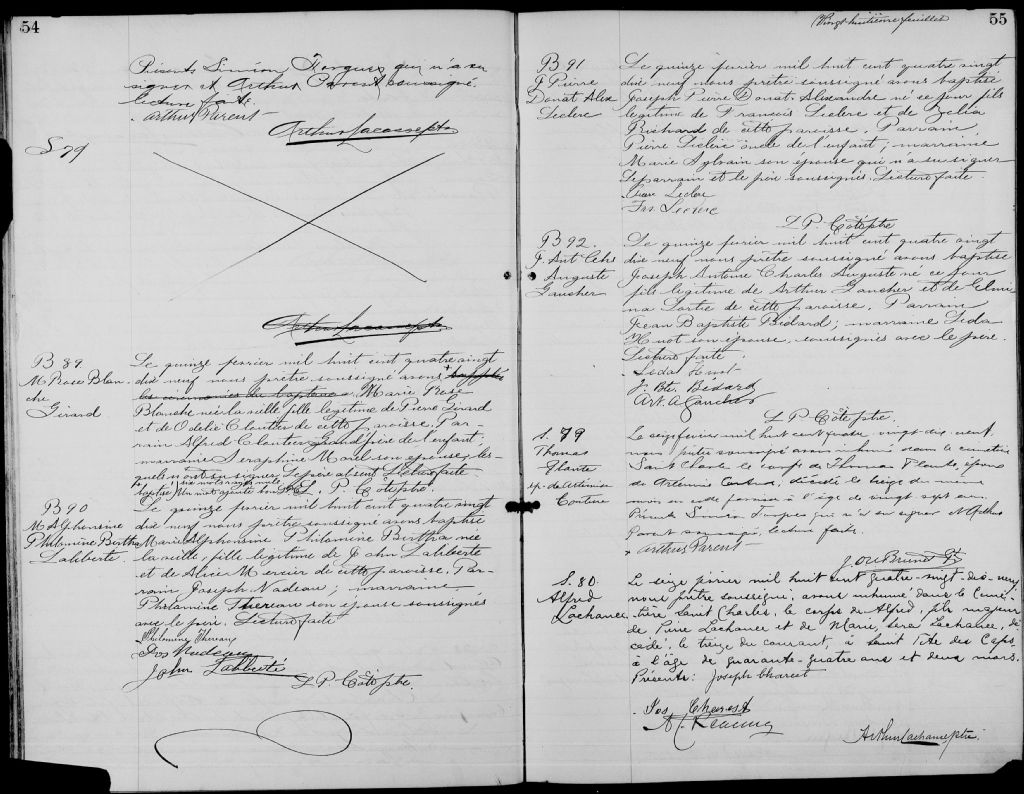 54
Présents Siméon Fargues qui n'a su
signer et Arthur Parent soussigné
lecture faite.
Arthur Parent
S 79
B 89
M Rose Blan
che
Girard
Le quinze fevrier mil huit cent quatre vingt
dix neuf nous prêtre soussigné avons baptisé
les ceremonies du bapteme Marie Rose
Blanche née la veille fille legitime de Pierre Girard
et de Odelie Cloutier de cette paroisse. Par-
rain Alfred Cloutier Grand'père de l'enfant;
marraine Seraphine Morel son epouse les-
quels n'ont su signer. Le père absent. Lecture faite
L. P. Côté ptre.
B 90
M Alphonsine
Philamine Bertha
Laliberté
Le quinze fevrier mil huit cent quatre vingt
dix neuf nous prêtre soussigné avons baptisé
Marie Alphonsine Philamine Bertha née
la veille, fille legitime de John Laliberté
et de Alice Mercier de cette paroisse. Par-
rain Joseph Nadeau; marraine
Philamine Thereau son epouse soussignés
avec le père. Lecture faite
Philamine Thereau
Jos Nadeau
John Laliberté
L P. Côté ptre.
(Vingt-huitième feuillet
55
B 91
J Pierre
Donat Alex
Leclerc
Le quinze fevrier mil huit cent quatre vingt
dix neuf nous prêtre soussigné avons baptisé
Joseph Pierre Donat Alexandre né ce jour fils
legitime de François Leclerc et de Zelia
Richard de cette paroisse. Parrain
Pierre Leclerc oncle de l'enfant; marraine
Marie Sylvain son épouse qui n'a su signer
Le parrain et le père soussignés. Lecture faite.
Pierre Leclerc
Frs Leclerc
L P. Côté ptre
B 92.
J. Ant Chs
Auguste
Gaucher
Le quinze fevrier mil huit cent quatre vingt
dix neuf nous prêtre soussigné avons baptisé
Joseph Antoine Charles Auguste né ce jour
fils legitime de Arthur Gaucher et de Elmi
na Lortie de cette paroisse. Parrain
Jean Baptiste Bédard; marraine Léda
Huot son épouse, soussignés avec le père.
Lecture faite.
Léda Huot
J. Bte Bédard
Art. A Gaucher
L P. Côté ptre.
S. 79
Thomas
Plante
ep. de Artémise
Couture
Le seize fevrier mil huit cent quatre vingt dix neuf,
nous prêtre soussigné avons inhumé dans le cimetière
Saint Charles le corps de Thomas Plante, époux
de Artémise Couture, décédé le treize du mois
à l'âge de vingt sept ans
Présents Siméon Fargues qui n'a su signer et Arthur
Parent soussigné, lecture faite.
Arthur Parent
S. 80.
Alfred
Lachance
Le seize février mil huit cent quatre-vingt-dix-neuf
nous prêtre soussigné, avons inhumé dans le cime-
tière Saint Charles, le corps de Alfred, fils majeur
de Pierre Lachance et de Marie, Lachance, dé-
cédé, le treize du courant, à Saint Tite des Caps,
à l'âge de quarante-quatre ans et deux mois.
Présents: Joseph Charest
Jos Charest
Arthur Lachance ptre.